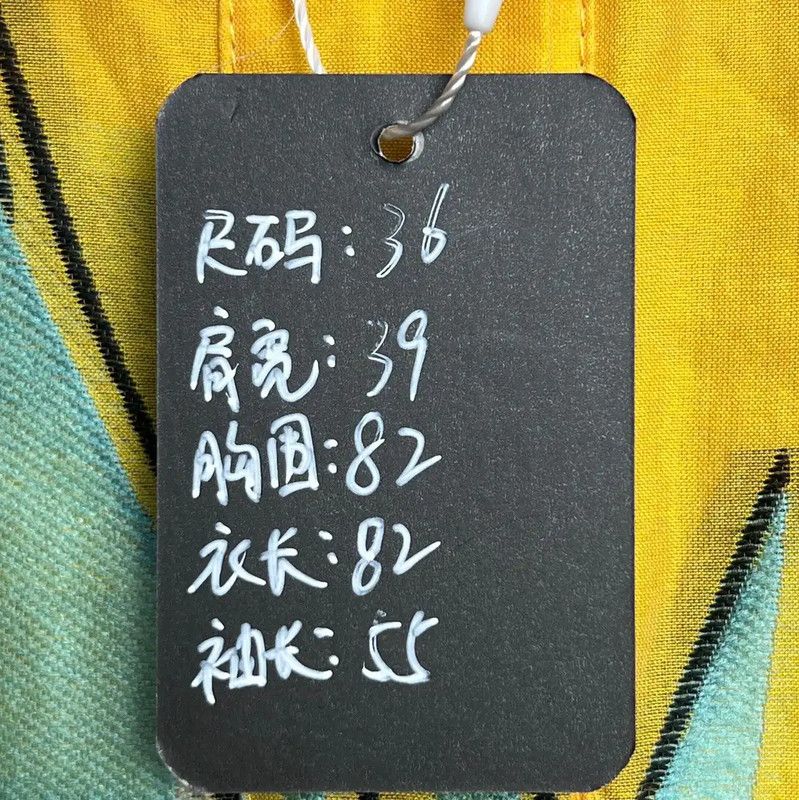 尺码:36
肩宽:39
胸围:82
衣长:82
袖长:55